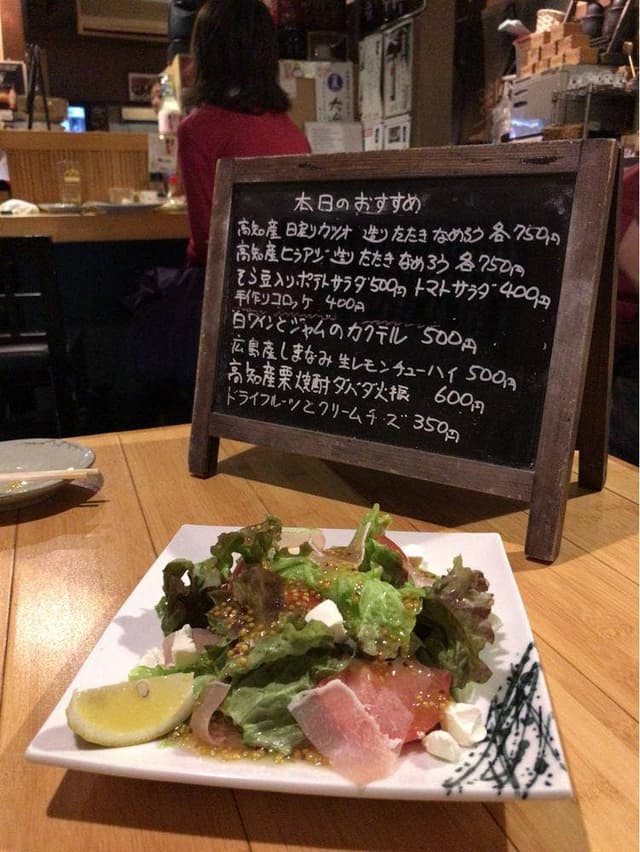 本日のおすすめ
高知産 日戻りカツオ 造り たたき なめろう 各750円
高知産 ヒラアジ 造り たたき なめろう 各750円
そら豆入りポテトサラダ500円 トマトサラダ400円
手作りコロッケ 400円
白ワインとジャムのカクテル 500円
広島産しまなみ 生レモンチューハイ 500円
高知産栗焼酎ダバダ火振 600円
ドライフルーツとクリームチーズ 350円